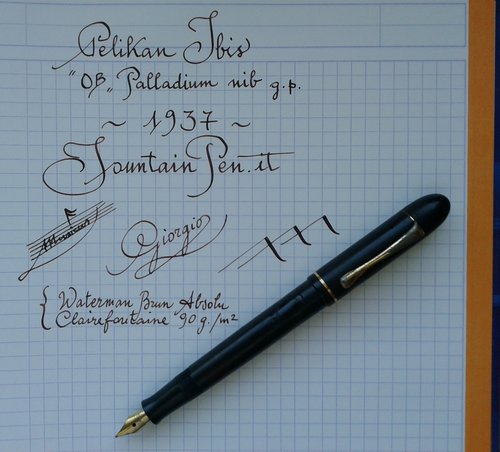 Pelikan Ibis
"OB„ Palladium nib g.p.
~ 1937 ~
FountainPen.it
Giorgio
{ Waterman Brun Absolu
Clairefontaine 90 g./m²